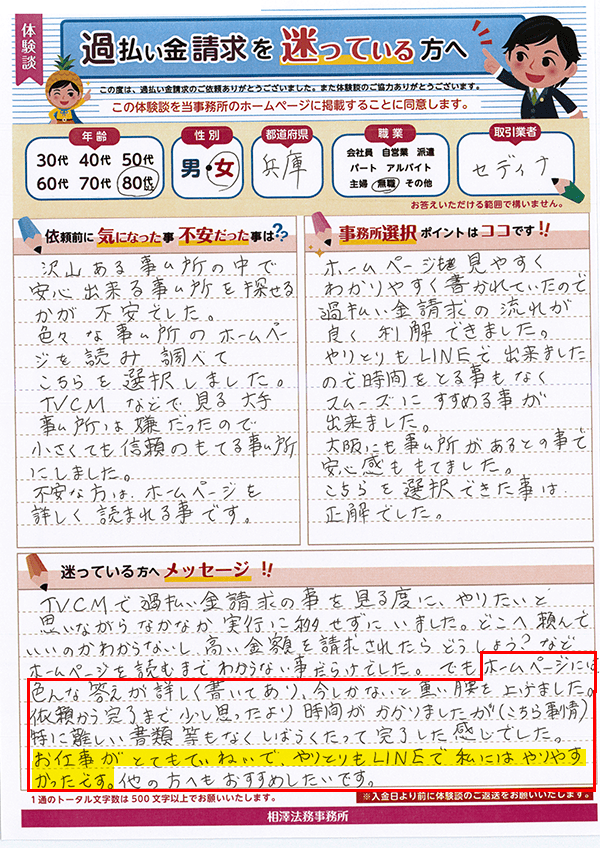 体験談
過払い金請求を迷っている方へ
この度は、過払い金請求のご依頼ありがとうございました。また体験談のご協力ありがとうございます。
この体験談を当事務所のホームページに掲載することに同意します。
年齢
30代 40代 50代
60代 70代 80代
性別
男・女
都道府県
兵庫
職業
会社員 自営業 派遣
パート アルバイト
主婦 無職 その他
取引業者
セディナ
お答えいただける範囲で構いません。
依頼前に気になった事 不安だった事は??
沢山ある事ム所の中で
安心出来る事ム所を探せる
かが不安でした。
色々な事ム所のホームペー
ジを読み調べて
こちらを選択しました。
TVCMなどで見る大手
事ム所は嫌だったので
小さくても信頼のもてる事ム所
にしました。
不安な方は、ホームページを
詳しく読まれる事です。
事務所選択 ポイントはココです!!
ホームページも見やすく
わかりやすく書かれていたので
過払い金請求の流れが
良く利解できました。
やりとりもLINEで出来ました
ので時間をとる事もなく
スムーズにすすめる事が
出来ました。
大阪にも事ム所があるとの事で
安心感ももてました。
こちらを選択できた事は
正解でした。
迷っている方へメッセージ!!
TVCMで過払い金請求の事を見る度に、やりたいと
思いながらなかなか実行に移せずにいました。どこへ頼んで
いいのかわからないし、高い金額を請求されたらどうしよう?など
ホームページを読むまでわからない事だらけでした。でもホームページには
色んな答えが詳しく書いてあり、今しかないと重い腰を上げました。
依頼から完了まで少し思ったより時間がかかりましたが(こちら事情)
特に難しい書類等もなくしばらくたって完了した感じでした。
お仕事がとてもていねいで、やりとりもLINEで私にはやりやす
かったです。他の方へもおすすめしたいです。
1通のトータル文字数は500文字以上でお願いいたします。
※入金日より前に体験談のご返送をお願いいたします。
相澤法務事務所